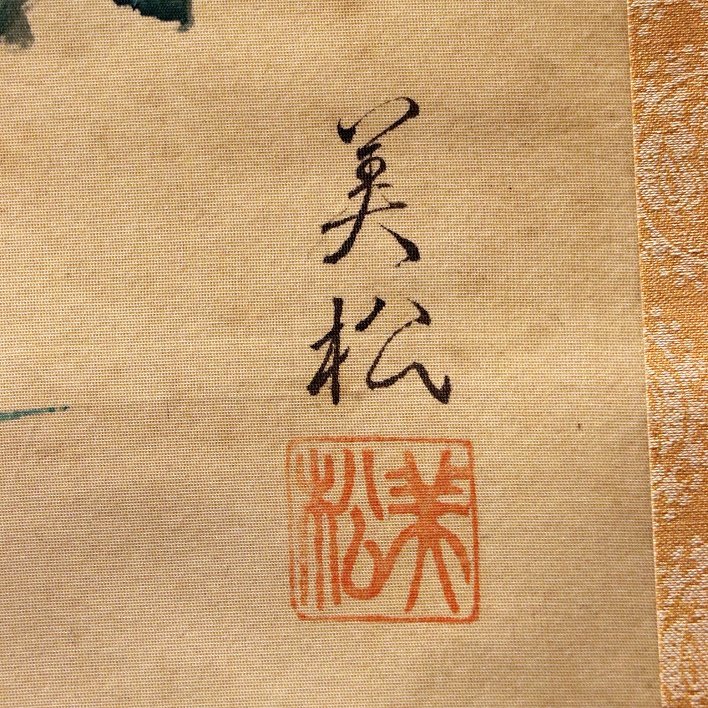 美松
美松